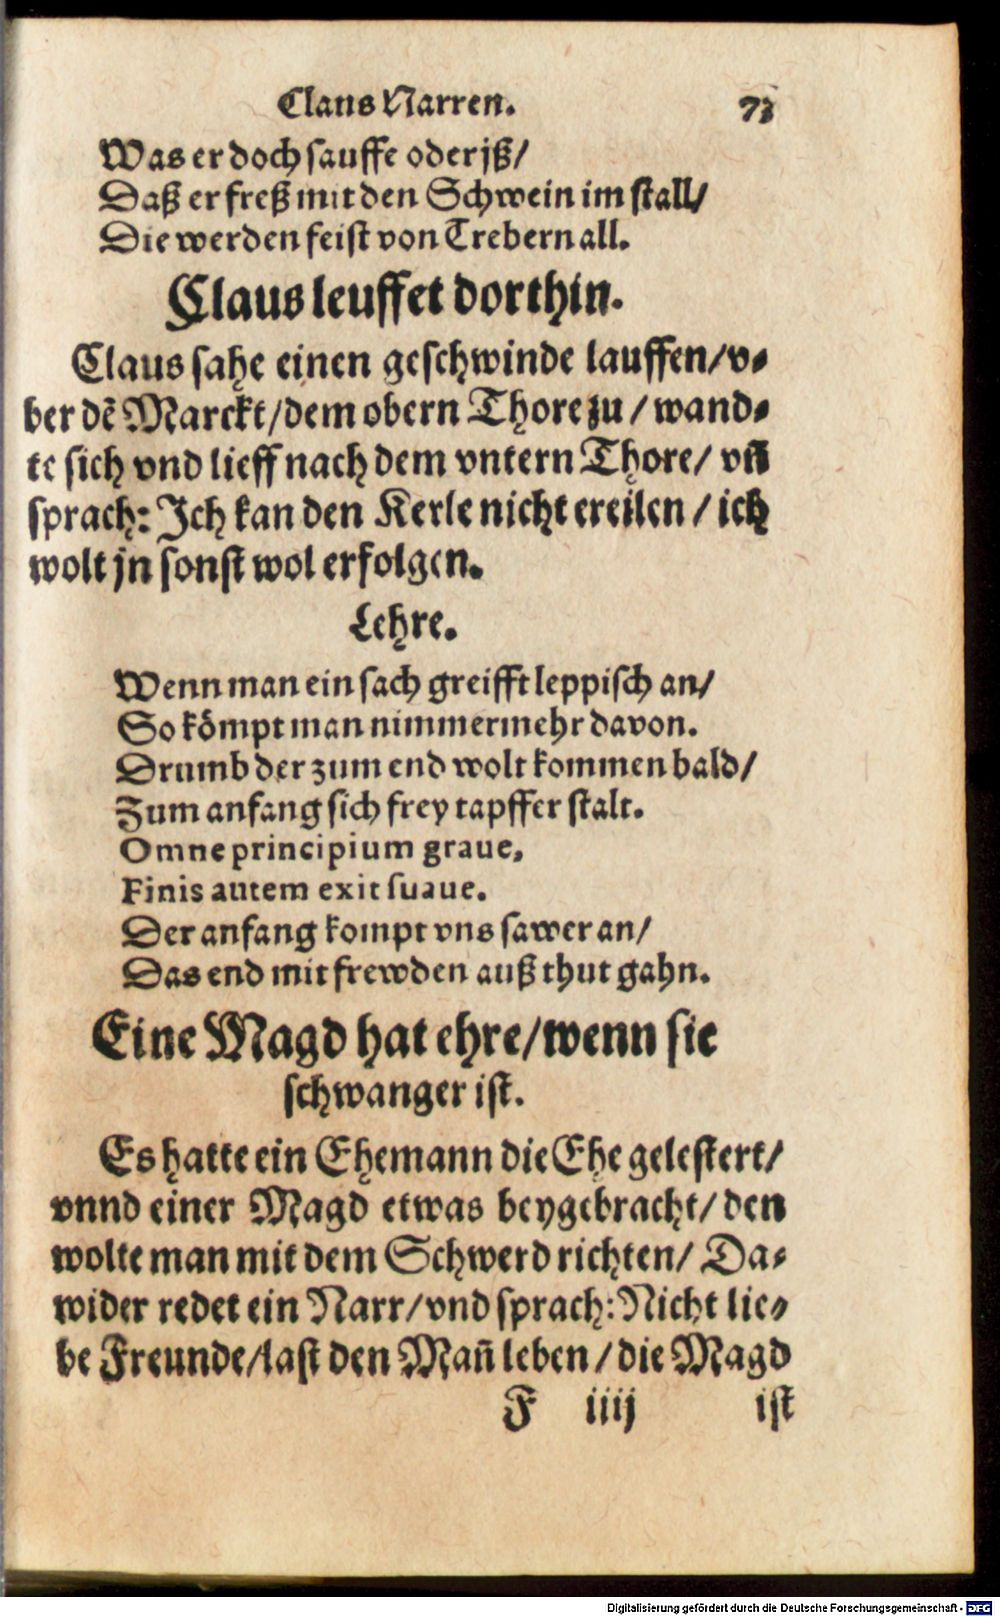 Claus Narren. 73
Was er doch sauffe oder jß/
Daß er freß mit den Schwein im stall/
Die werden feist von Trebern all.
Claus leuffet dorthin.
Claus sahe einen geschwinde lauffen/v⸗
ber dẽ Marckt/dem obern Thore zu/wand⸗
te sich vnd lieff nach dem vntern Thore/ vñ
sprach: Ich kan den Kerle nicht ereilen/ich
wolt jn sonst wol erfolgen.
Lehre.
Wenn man ein sach greifft leppisch an/
So kömpt man nimmermehr davon.
Drumb der zum end wolt kommen bald/
Zum anfang sich frey tapffer stalt.
Omne principium graue,
Finis autem exit suaue.
Der anfang kompt vns sawer an/
Das end mit frewden auß thut gahn.
Eine Magd hat ehre/wenn sie
schwanger ist.
Es hatte ein Ehemann die Ehe gelestert/
vnnd einer Magd etwas beygebracht/den
wolte man mit dem Schwerd richten/ Da⸗
wider redet ein Narr/vnd sprach: Nicht lie⸗
be Freunde/last den Mañ leben/die Magd
F iiij ist
Digitalisierung gefördert durch die Deutsche Forschungsgemeinschaft - DFG